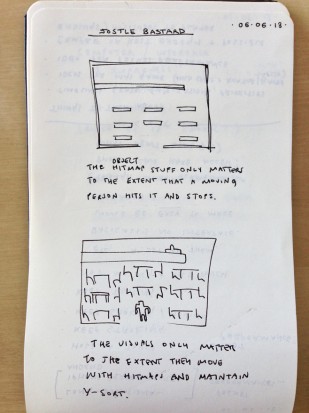 JOSTLE BASTARD
· 06·06·18·
OBJECT
THE HITMAP STUFF ONLY MATTERS
TO THE EXTENT THAT A MOVING
PERSON HITS IT AND STOPS.
THE VISUALS ONLY MATTER
TO THE EXTENT THEY MOVE
WITH HITMAPS AND MAINTAIN
Y-SORT.